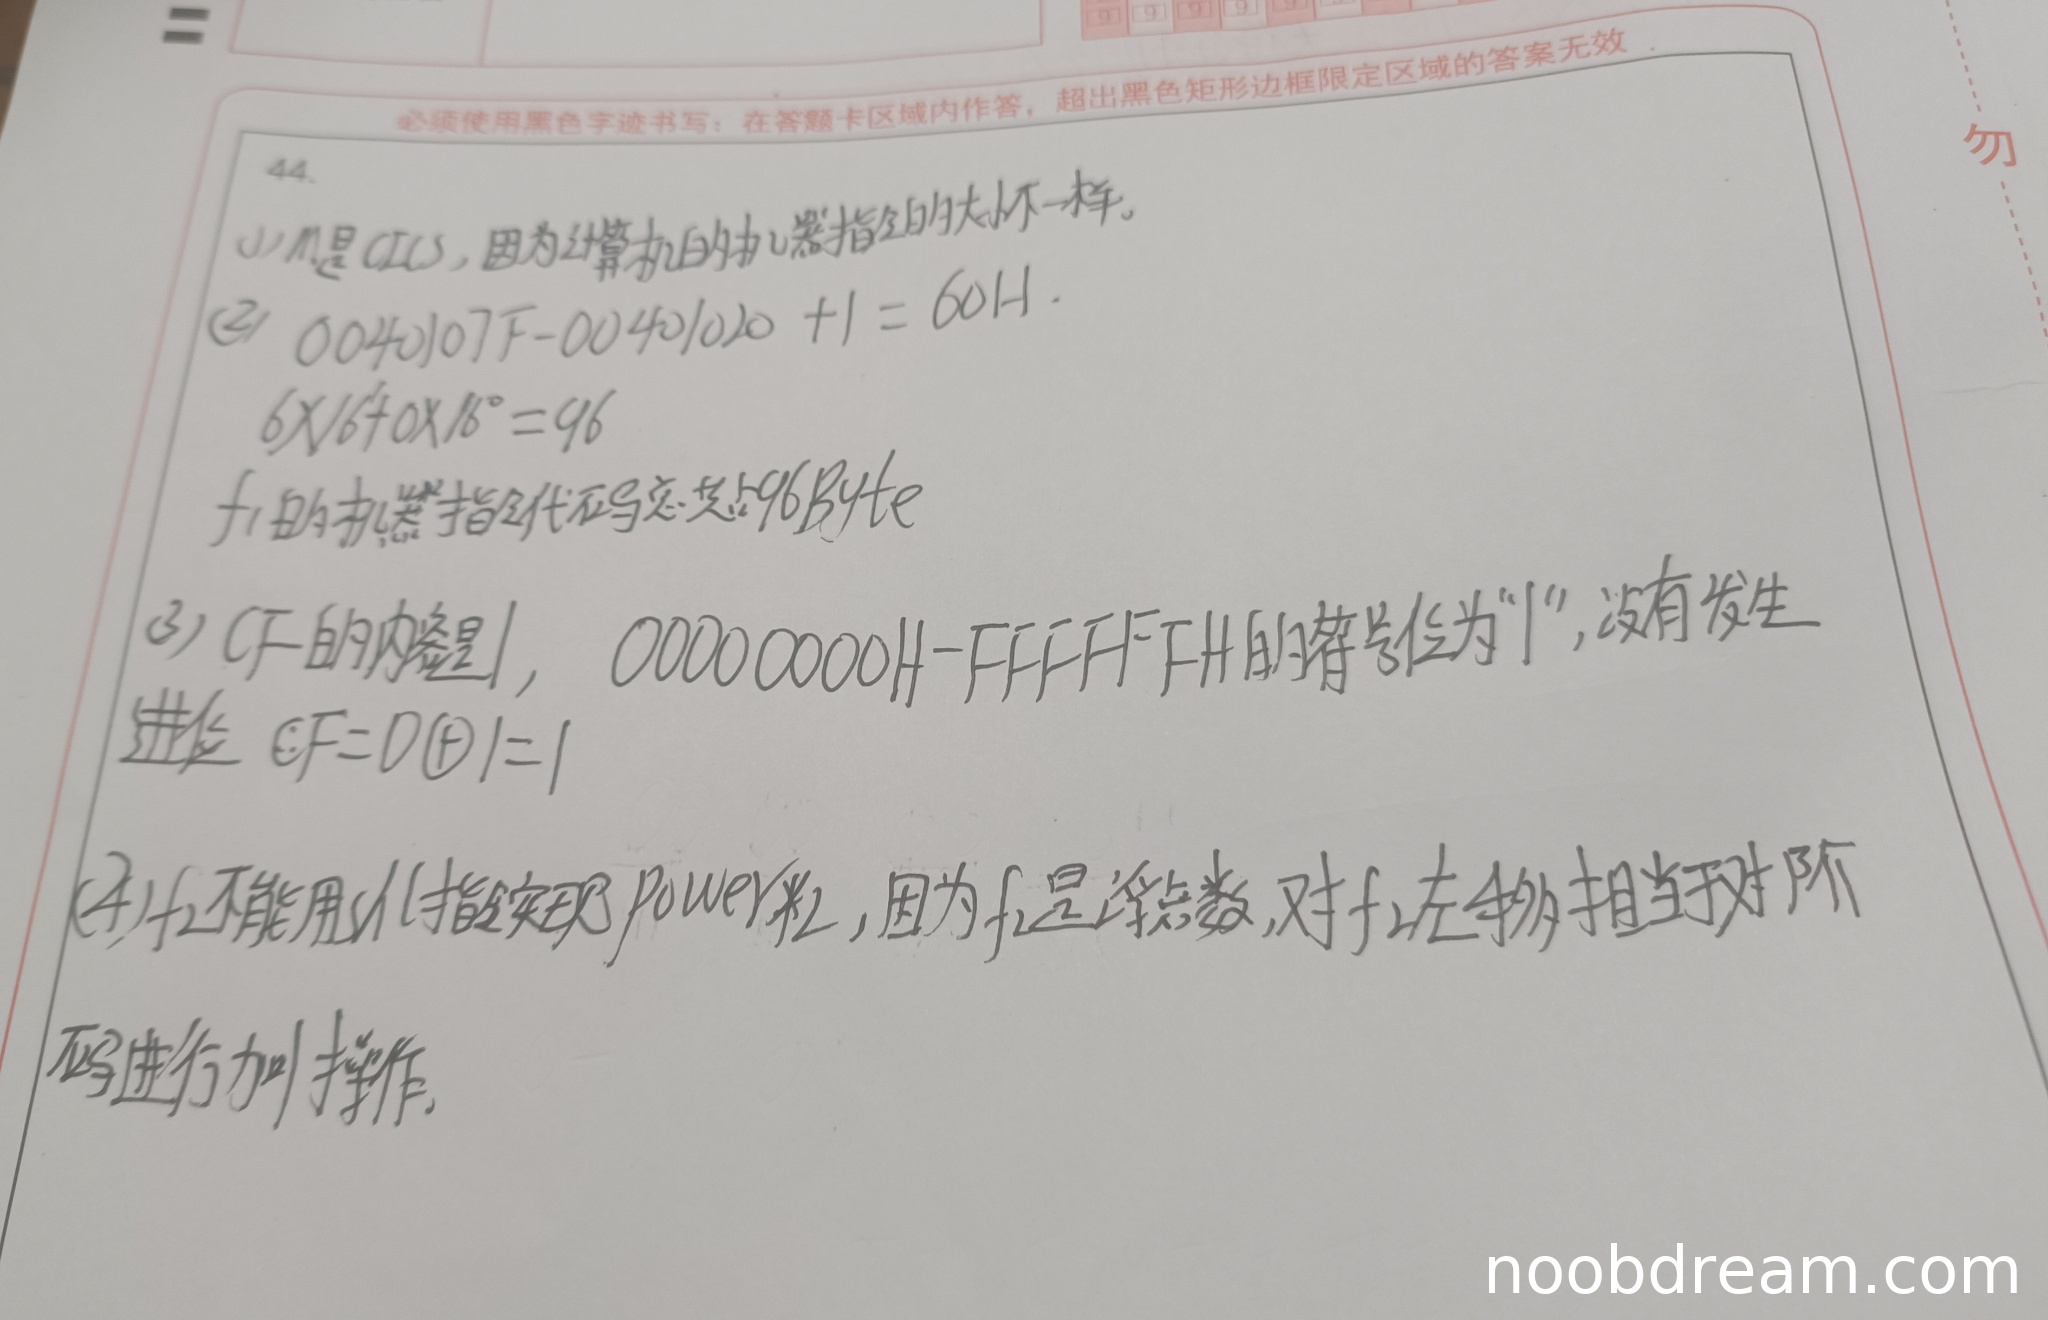 必须使用黑色字迹书写：在答题卡区域内作答，超出黑色矩形边框限定区域的答案无效
勿
44.
(1) M是CICS，因为计算机的机器指令的大小不一样。
(2) 0040107F-00401020 +1 = 60H.
6X16¹+0X16⁰=96
f1的机器指令代码总共占96Byte
(3) CF的内容是1， 00000000H-FFFFFFFH的符号位为“1”，没有发生
进位 CF=0⊕1=1
(4) f2不能用shl指令实现power*2，因为f2是浮点数，对f2左移相当于对阶
码进行加1操作.
noobdream.com